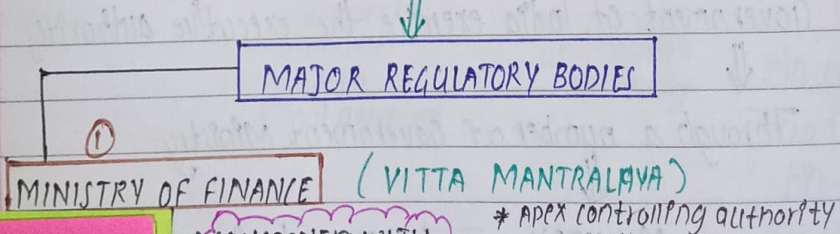 MAJOR REGULATORY BODIES
①
MINISTRY OF FINANCE (VITTA MANTRALAYA)
* Apex controlling authority